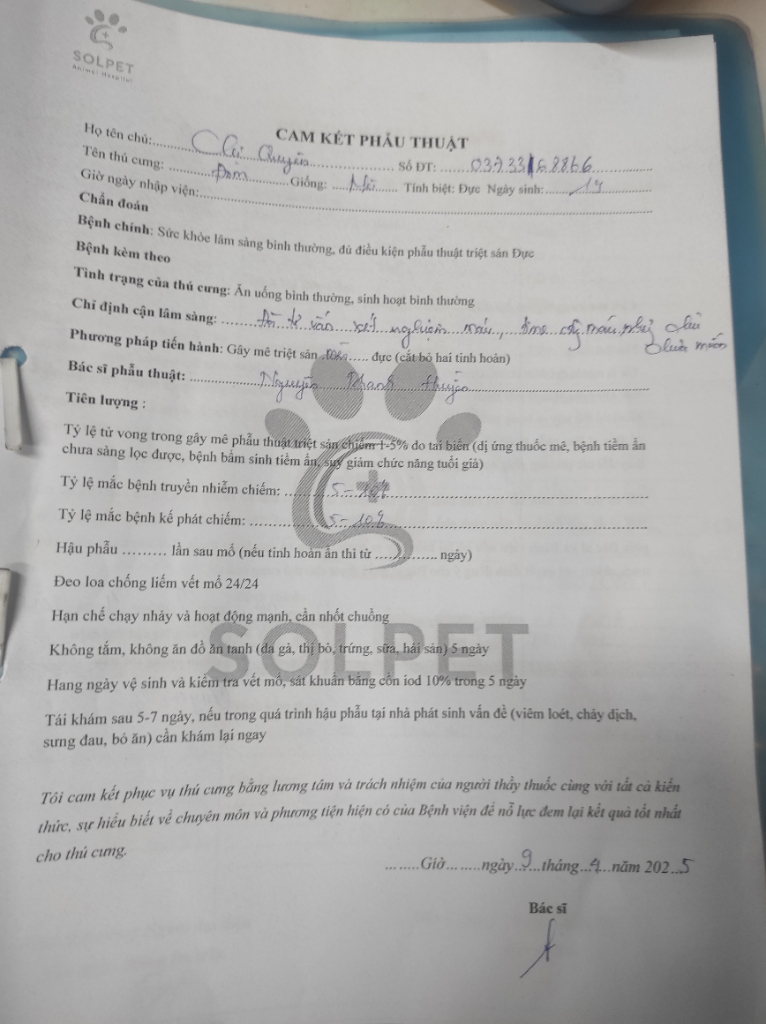 SOLPET
Animal Hospital
CAM KẾT PHẪU THUẬT
Họ tên chủ: Chị Quyên Số ĐT: 0373368866
Tên thú cưng: Giống: Tính biệt: Đực Ngày sinh: 1y
Giờ ngày nhập viện:
Chẩn đoán
Bệnh chính: Sức khỏe lâm sàng bình thường, đủ điều kiện phẫu thuật triệt sản Đực
Bệnh kèm theo
Tình trạng của thú cưng: Ăn uống bình thường, sinh hoạt bình thường
Chỉ định cận lâm sàng: Đã tư vấn xét nghiệm máu, máu, chủ
chưa muốn
Phương pháp tiến hành: Gây mê triệt sản mèo đực (cắt bỏ hai tinh hoàn)
Bác sĩ phẫu thuật: Nguyễn Khanh Huyền
Tiên lượng :
Tỷ lệ tử vong trong gây mê phẫu thuật triệt sản chiếm 1-5% do tai biến (dị ứng thuốc mê, bệnh tiềm ẩn
chưa sàng lọc được, bệnh bẩm sinh tiềm ẩn, suy giảm chức năng tuổi già)
Tỷ lệ mắc bệnh truyền nhiễm chiếm: 5-10%
Tỷ lệ mắc bệnh kế phát chiếm: 5-10%
Hậu phẫu ......... lần sau mổ (nếu tinh hoàn ẩn thì từ ............ ngày)
Đeo loa chống liếm vết mổ 24/24
Hạn chế chạy nhảy và hoạt động mạnh, cần nhốt chuồng
Không tắm, không ăn đồ ăn tanh (da gà, thị bò, trứng, sữa, hải sản) 5 ngày
SOLPET
Hang ngày vệ sinh và kiểm tra vết mổ, sát khuẩn bằng cồn iod 10% trong 5 ngày
Tái khám sau 5-7 ngày, nếu trong quá trình hậu phẫu tại nhà phát sinh vấn đề (viêm loét, chảy dịch,
sưng đau, bỏ ăn) cần khám lại ngay
Tôi cam kết phục vụ thú cưng bằng lương tâm và trách nhiệm của người thầy thuốc cùng với tất cả kiến
thức, sự hiểu biết về chuyên môn và phương tiện hiện có của Bệnh viện để nỗ lực đem lại kết quả tốt nhất
cho thú cưng.
........Giờ........ngày 9 tháng 4 năm 2025
Bác sĩ